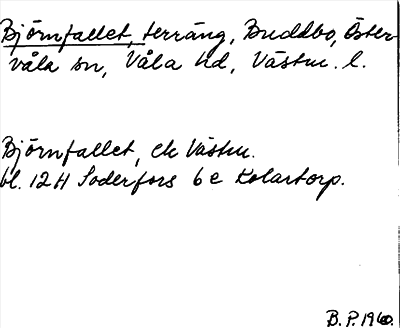 Björnfallet, terräng, Buddbo, Öster-
våla sn, Våla hd, Västm. l.
Björnfallet, ek Västm.
bl. 12 H Söderfors 6 e Kolartorp.
B. P. 1960.